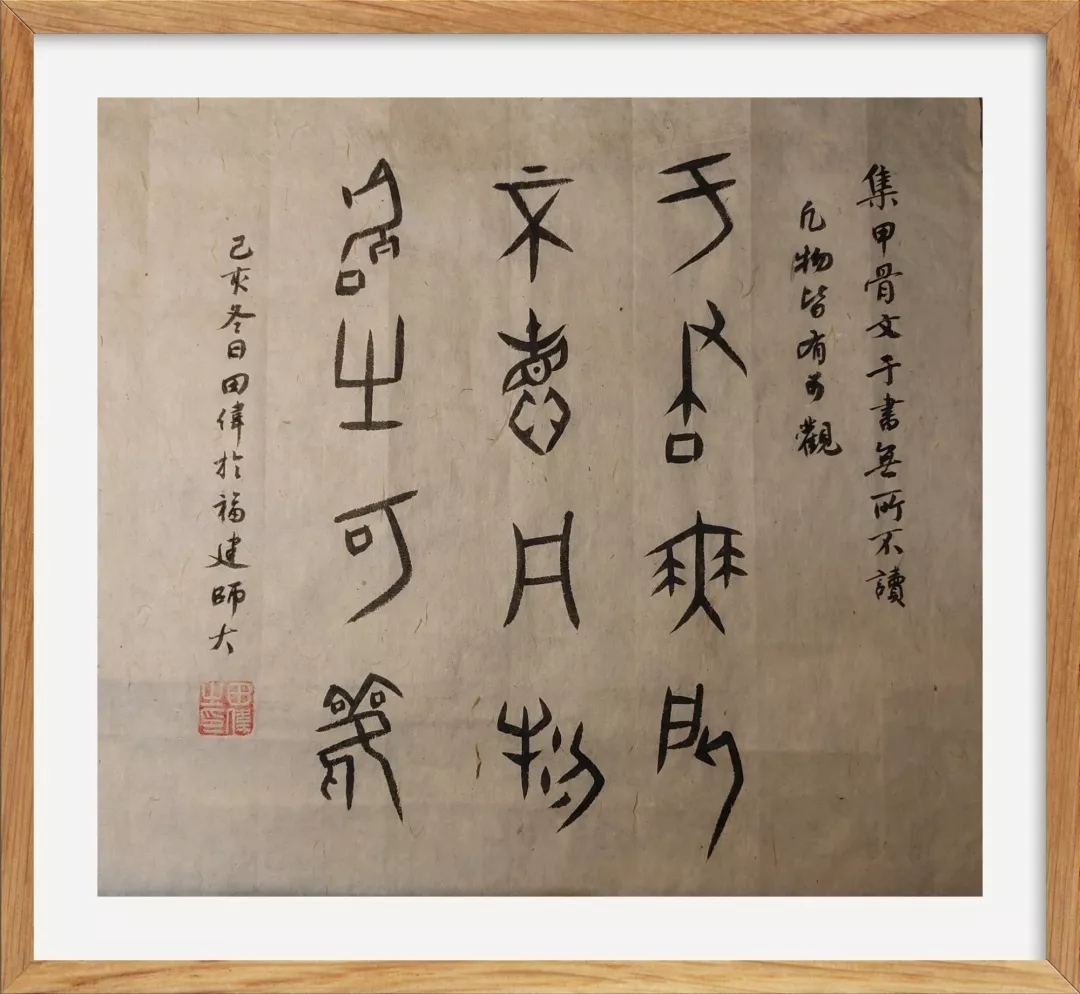 集甲骨文于書無所不讀
凡物皆有可觀
于書無所
不讀凡物
皆有可觀
己亥冬日田偉於福建師大
田偉之印